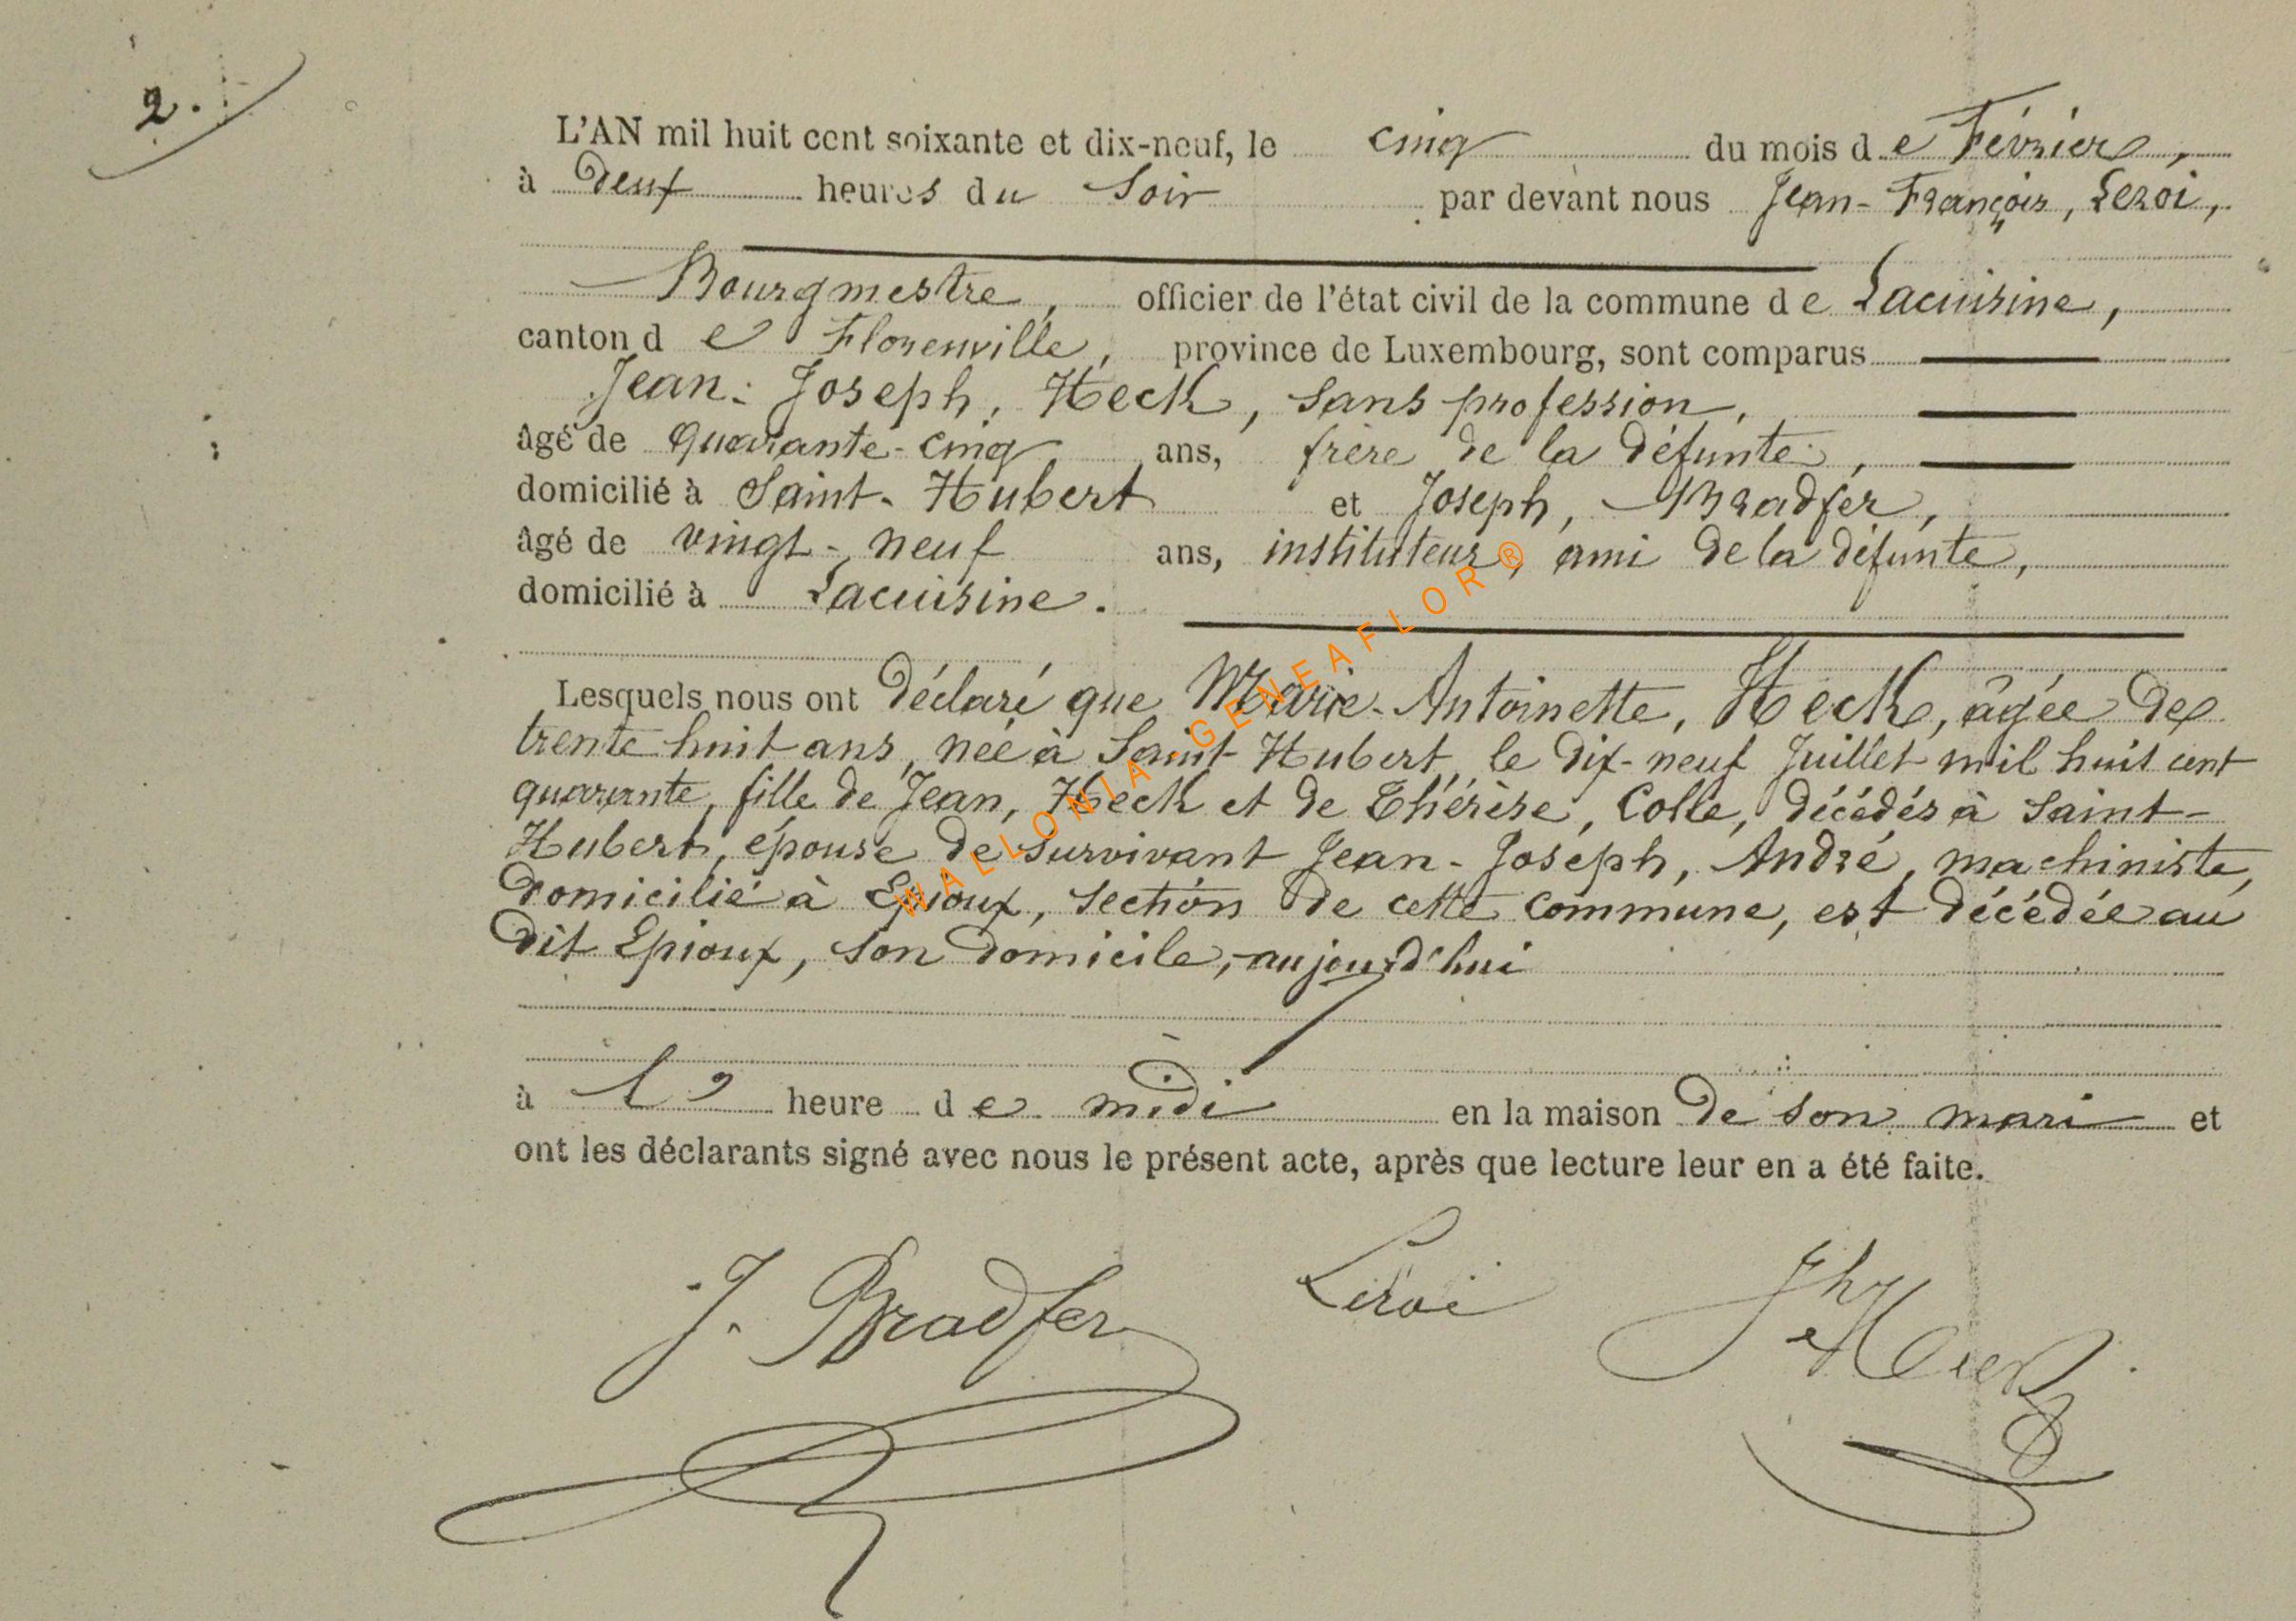 2.
L'AN mil huit cent soixante et dix-neuf, le cinq du mois de Février,
à deux heures du soir par devant nous Jean-François, Leroi,
Bourgmestre, officier de l'état civil de la commune de Lacuisine,
canton de Florenville, province de Luxembourg, sont comparus
Jean-Joseph, Heck, sans profession,
âgé de quarante-cinq ans, frère de la défunte,
domicilié à Saint-Hubert et Joseph, Bradfer,
âgé de vingt-neuf ans, instituteur, ami de la défunte,
domicilié à Lacuisine.
Lesquels nous ont déclaré que Marie-Antoinette, Heck, âgée de
trente huit ans, née à Saint-Hubert, le dix-neuf Juillet mil huit cent
quarante, fille de Jean, Heck et de Thérèse, Colle, décédés à Saint-
Hubert, épouse de survivant Jean-Joseph, André, machiniste,
domicilié à Epioux, section de cette commune, est décédée au
dit Epioux, son domicile, aujourd'hui
à heure de midi en la maison de son mari et
ont les déclarants signé avec nous le présent acte, après que lecture leur en a été faite.
J. Bradfer Leroi Jh Heck
WALLONIA-GENEAFLOR®